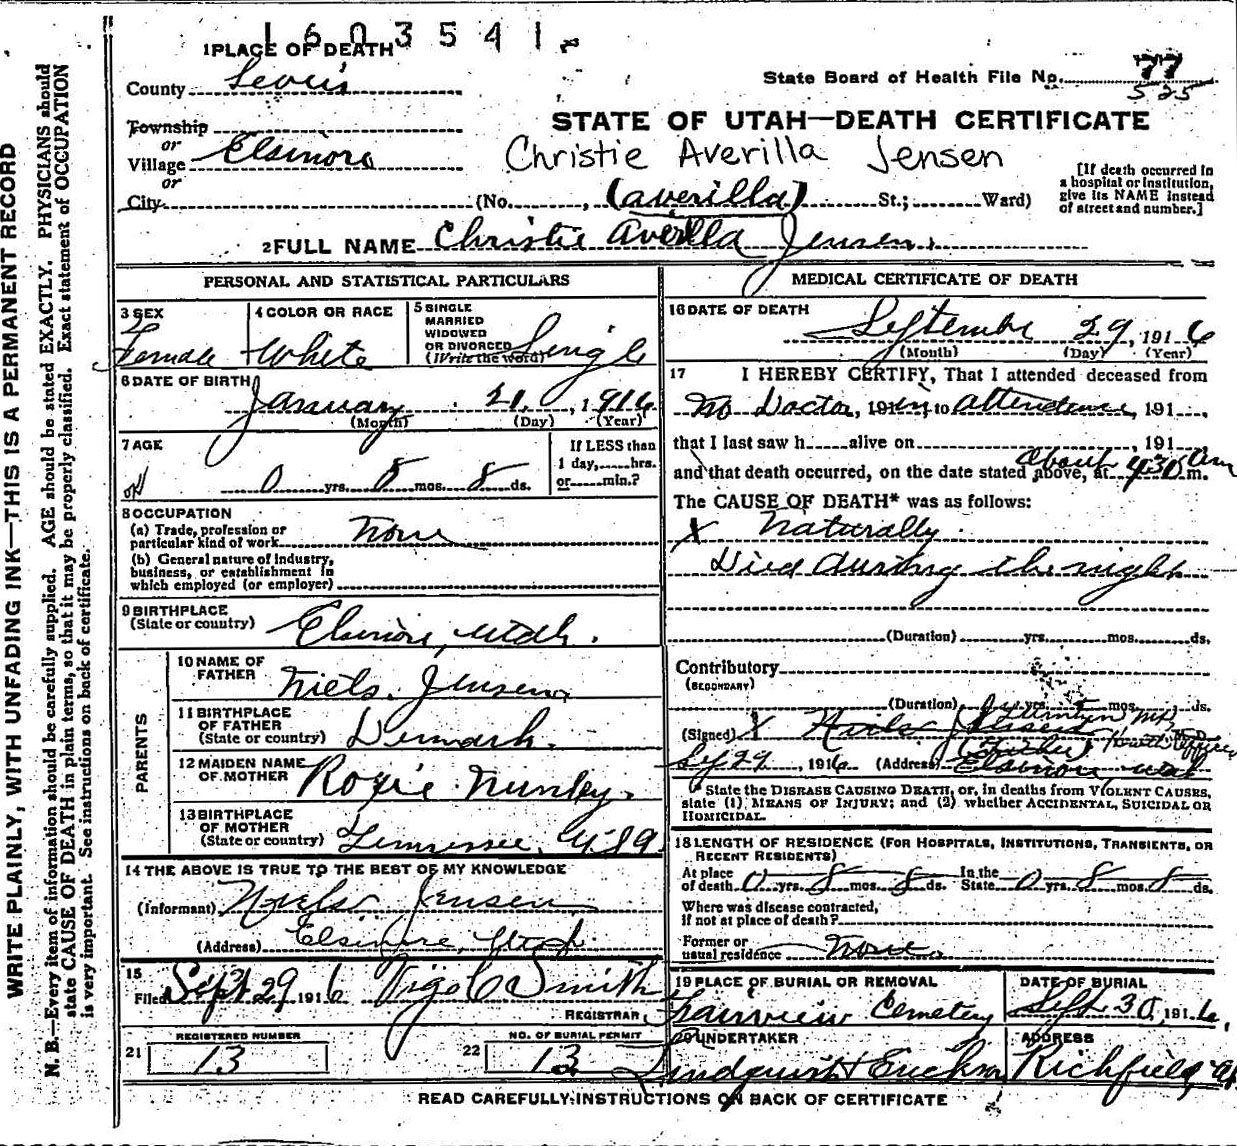 1603541
1 PLACE OF DEATH
County Sevier
State Board of Health File No. 77
525
STATE OF UTAH—DEATH CERTIFICATE
Township
or
Village Elsinore
or
City
Christie Averilla Jensen
(No. , (averilla) St.; Ward)
[If death occurred in
a hospital or institution,
give its NAME instead
of street and number.]
2 FULL NAME Christie Averilla Jensen.
PERSONAL AND STATISTICAL PARTICULARS
3 SEX
Female
4 COLOR OR RACE
White
5 SINGLE
MARRIED
WIDOWED
OR DIVORCED
(Write the word) Single
6 DATE OF BIRTH
January 21, 1916
(Month) (Day) (Year)
7 AGE
0 yrs. 8 mos. 8 ds.
If LESS than
1 day, hrs.
or min.?
8 OCCUPATION
(a) Trade, profession or
particular kind of work None
(b) General nature of industry,
business, or establishment in
which employed (or employer)
9 BIRTHPLACE
(State or country) Elsinore, Utah.
PARENTS
10 NAME OF
FATHER Niels Jensen
11 BIRTHPLACE
OF FATHER
(State or country) Denmark.
12 MAIDEN NAME
OF MOTHER Roxie Nunley.
13 BIRTHPLACE
OF MOTHER
(State or country) Tennessee,
14 THE ABOVE IS TRUE TO THE BEST OF MY KNOWLEDGE
(Informant) Niels Jensen
(Address) Elsinore, Utah.
15
Filed Sept 29 1916 Vigo C Smith
REGISTRAR
21 REGISTERED NUMBER
13
22 NO. OF BURIAL PERMIT
13
MEDICAL CERTIFICATE OF DEATH
16 DATE OF DEATH
September 29, 1916
(Month) (Day) (Year)
17 I HEREBY CERTIFY, That I attended deceased from
No Doctor, 191 in to attendance, 191 ,
that I last saw h alive on , 191
and that death occurred, on the date stated above, at about 4 30 am m.
The CAUSE OF DEATH* was as follows:
X Naturally
Died during the night
(Duration) yrs. mos. ds.
Contributory
(SECONDARY)
(Duration) yrs. mos. ds.
(Signed) X Niels Jensen
(Father) Health Officer
Sep 29, 1916 (Address) Elsinore, Utah
*State the DISEASE CAUSING DEATH, or, in deaths from VIOLENT CAUSES,
state (1) MEANS OF INJURY; and (2) whether ACCIDENTAL, SUICIDAL OR
HOMICIDAL.
18 LENGTH OF RESIDENCE (FOR HOSPITALS, INSTITUTIONS, TRANSIENTS, OR
RECENT RESIDENTS)
At place
of death 0 yrs. 8 mos. 8 ds. In the
State 0 yrs. 8 mos. 8 ds.
Where was disease contracted,
if not at place of death?
Former or
usual residence None.
19 PLACE OF BURIAL OR REMOVAL
Fairview Cemetery
DATE OF BURIAL
Sept. 30, 1916,
20 UNDERTAKER
Lindquist & Erickson
ADDRESS
Richfield,
READ CAREFULLY INSTRUCTIONS ON BACK OF CERTIFICATE
WRITE PLAINLY, WITH UNFADING INK—THIS IS A PERMANENT RECORD
N. B.—Every item of information should be carefully supplied. AGE should be stated EXACTLY. PHYSICIANS should
state CAUSE OF DEATH in plain terms, so that it may be properly classified. Exact statement of OCCUPATION
is very important. See instructions on back of certificate.